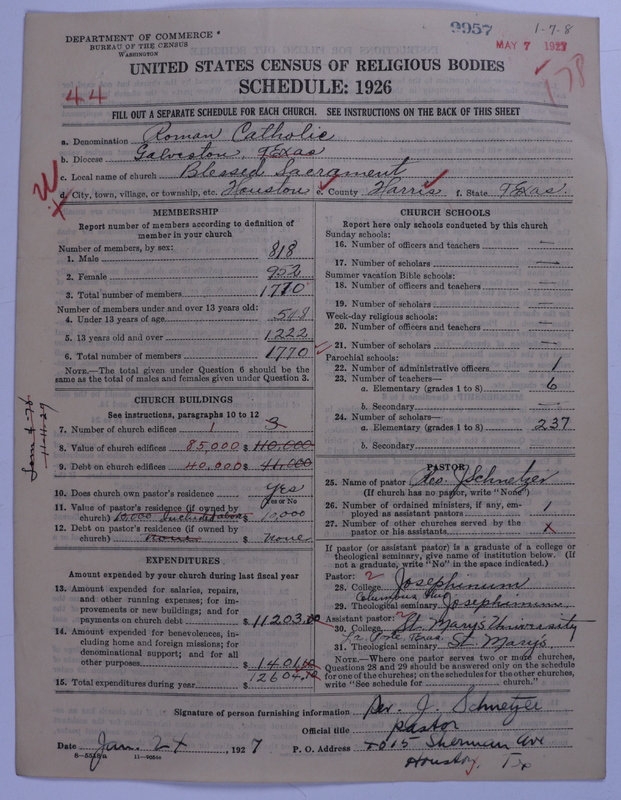 DEPARTMENT OF COMMERCE
BUREAU OF THE CENSUS
WASHINGTON
9957
1-7-8
MAY 7 1927
178
44
UNITED STATES CENSUS OF RELIGIOUS BODIES
SCHEDULE: 1926
FILL OUT A SEPARATE SCHEDULE FOR EACH CHURCH. SEE INSTRUCTIONS ON THE BACK OF THIS SHEET
a. Denomination Roman Catholic
b. Diocese Galveston, Texas
c. Local name of church Blessed Sacrament
d. City, town, village, or township, etc. Houston e. County Harris f. State Texas.
MEMBERSHIP
Report number of members according to definition of member in your church
Number of members, by sex:
1. Male 818
2. Female 952
3. Total number of members 1770
Number of members under and over 13 years old:
4. Under 13 years of age 548
5. 13 years old and over 1222
6. Total number of members 1770
NOTE.—The total given under Question 6 should be same as the total of males and females given under Question 3.
CHURCH BUILDINGS
See instructions, paragraphs 10 to 12
7. Number of church edifices 1 3
8. Value of church edifices 85,000 $ 110,000
9. Debt on church edifices 40,000 $ 41,000
10. Does church own pastor's residence Yes
Yes or No
11. Value of pastor's residence (if owned by church) 10,000 Included above $ 10,000
12. Debt on pastor's residence (if owned by church) none $ none
EXPENDITURES
Amount expended by your church during last fiscal year
13. Amount expended for salaries, repairs, and other running expenses; for improvements or new buildings; and for payments on church debt $ 11203.
14. Amount expended for benevolences, including home and foreign missions; for denominational support; and for all other purposes $ 1401.
15. Total expenditures during year $ 12604.
CHURCH SCHOOLS
Report here only schools conducted by this church
Sunday schools:
16. Number of officers and teachers —
17. Number of scholars —
Summer vacation Bible schools:
18. Number of officers and teachers —
19. Number of scholars —
Week-day religious schools:
20. Number of officers and teachers —
21. Number of scholars —
Parochial schools:
22. Number of administrative officers 1
23. Number of teachers—
a. Elementary (grades 1 to 8) 6
b. Secondary —
24. Number of scholars—
a. Elementary (grades 1 to 8) 237
b. Secondary
PASTOR
25. Name of pastor J Schnetzer
(If church has no pastor, write "None")
26. Number of ordained ministers, if any, employed as assistant pastors 1
27. Number of other churches served by the pastor or his assistants x
If pastor (or assistant pastor) is a graduate of a college or theological seminary, give name of institution below. (If not a graduate, write "No" in the space indicated.)
Pastor: 2
28. College Josephinum
Columbus Ohio
29. Theological seminary Josephinum
Assistant pastor: 2
30. College St. Mary's University
La Porte, Texas.
31. Theological seminary St Mary's
NOTE.—Where one pastor serves two or more churches, Questions 28 and 29 should be answered only on the schedule for one of the churches; on the schedules for the other churches, write "See schedule for church."
Signature of person furnishing information Rev. J. Schnetzer
Official title pastor
Date Jan. 24, 1927 P. O. Address 4015 Sherman Ave
Houston, Tx